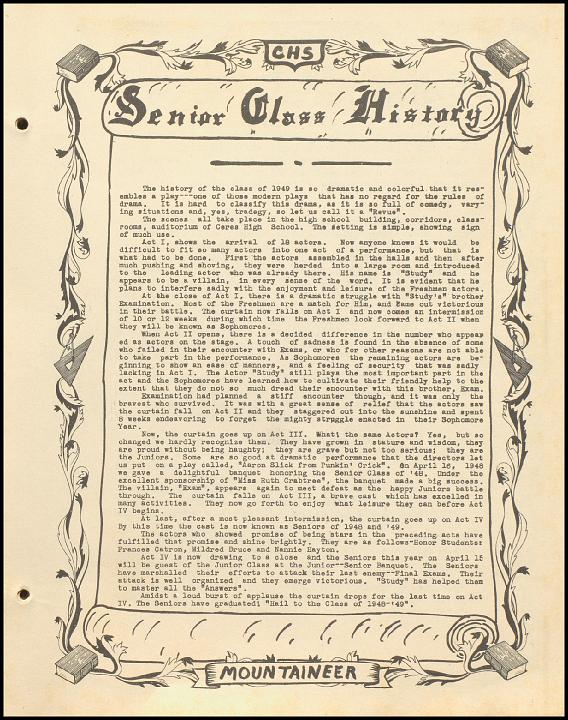 CHS
Senior Class History
The history of the class of 1949 is so dramatic and colorful that it res-
embles a play---one of those modern plays that has no regard for the rules of
drama. It is hard to classify this drama, as it is so full of comedy, vary-
ing situations and, yes, tradegy, so let us call it a "Revue".
The scenes all take place in the high school building, corridors, class-
rooms, auditorium of Ceres High School. The setting is simple, showing sign
of much use.
Act I, shows the arrival of 18 actors. Now anyone knows it would be
difficult to fit so many actors into one act of a performance, but that is
what had to be done. First the actors assembled in the halls and then after
much pushing and shoving, they were herded into a large room and introduced
to the leading actor who was already there. His name is "Study" and he
appears to be a villain, in every sense of the word. It is evident that he
plans to interfere sadly with the enjoyment and leisure of the Freshmen actors.
At the close of Act I, there is a dramatic struggle with "Study's" brother
Examination. Most of the Freshmen are a match for Him, and Eams out victorious
in their battle. The curtain now falls on Act I and now comes an intermission
of 10 or 12 weeks during which time the Freshmen look forward to Act II when
they will be known as Sophomores.
When Act II opens, there is a decided difference in the number who appear
ed as actors on the stage. A touch of sadness is found in the absence of some
who failed in their encounter with Exams, or who for other reasons are not able
to take part in the performance. As Sophomores the remaining actors are be-
ginning to show an ease of manners, and a feeling of security that was sadly
lacking in Act I. The Actor "Study" still plays the most important part in the
act and the Sophomores have learned how to cultivate their friendly help to the
extent that they do not so much dread their encounter with this brother, Exam.
Examination had planned a stiff encounter though, and it was only the
bravest who survived. It was with a great sense of relief that the actors saw
the curtain fall on Act II and they staggered out into the sunshine and spent
8 weeks endeavoring to forget the mighty struggle enacted in their Sophomore
Year.
Now, the curtain goes up on Act III. What! the same Actors? Yes, but so
changed we hardly recognize them. They have grown in stature and wisdom, they
are proud without being haughty; they are grave but not too serious; they are
the Juniors. Some are so good at dramatic performance that the directors let
us put on a play called, "Aaron Slick from Punkin' Crick". On April 16, 1948
we gave a delightful banquet honoring the Senior Class of '48. Under the
excellent sponsorship of "Miss Ruth Crabtree", the banquet made a big success.
The villain, "Exam", appears again to meet defeat as the happy Juniors battle
through. The curtain falls on Act III, a brave cast which has excelled in
many activities. They now go forth to enjoy what leisure they can before Act
IV begins.
At last, after a most pleasent intermission, the curtain goes up on Act IV
By this time the cast is now known as Seniors of 1948 and '49.
The actors who showed promise of being stars in the preceding acts have
fulfilled that promise and shine brightly. They are as follows-Honor Students:
Frances Catron, Mildred Bruce and Nannie Hayton.
Act IV is now drawing to a close and the Seniors this year on April 15
will be guest of the Junior Class at the Junior--Senior Banquet. The Seniors
have marshalled their efforts to attack their last enemy--Final Exams. Their
attack is well organized and they emerge victorious. "Study" has helped them
to master all the "Answers".
Amidst a loud burst of applause the curtain drops for the last time on Act
IV. The Seniors have graduated! "Hail to the Class of 1948-'49".
MOUNTAINEER